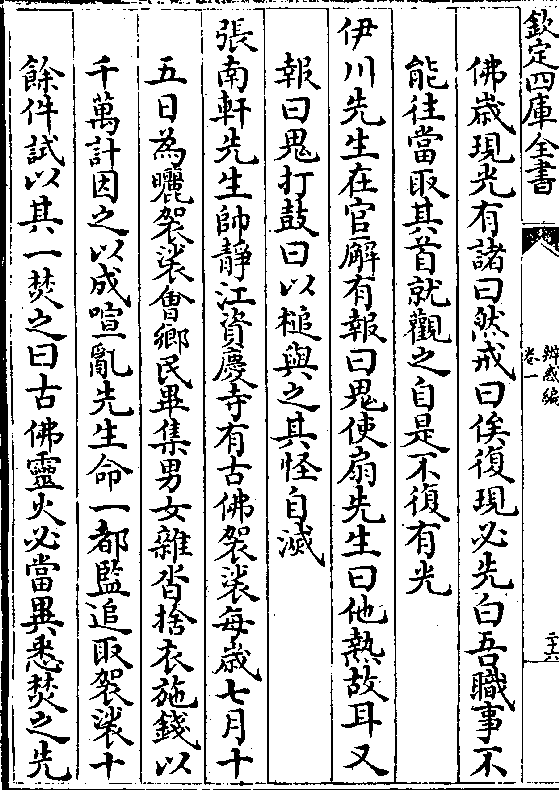 欽定四庫全書
辨惑編
卷一
二十六
佛歲現光有諸曰然戒曰俟復現必先白吾職事不
能往當取其首就觀之自是不復有光
伊川先生在官廨有報曰鬼使扇先生曰他熱故耳又
報曰鬼打鼓曰以槌與之其怪自滅
張南軒先生帥靜江資慶寺有古佛袈裟每歲七月十
五日為曬袈裟會鄉民畢集男女雜沓捨衣施錢以
千萬計因之以成喧亂先生命一都監追取袈裟十
餘件試以其一焚之曰古佛靈火必當異悉焚之先